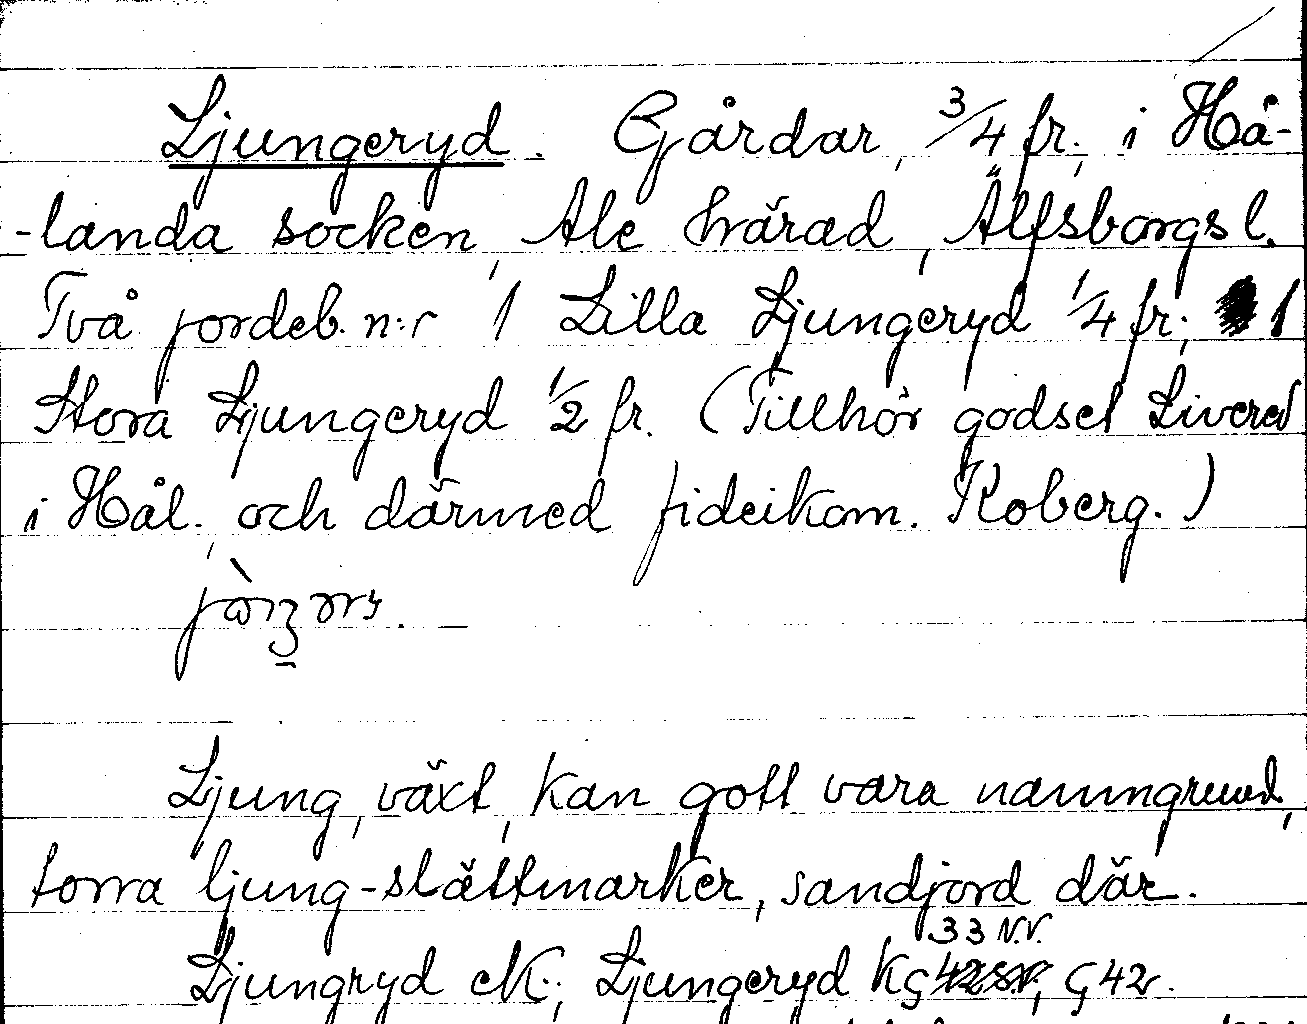 Ljungeryd. Gårdar, 3/4 fr., i Hå-
-landa socken, Ale härad, Älfsborgs l.
Två jordeb. n:r 1 Lilla Ljungeryd 1/4 fr.; 1
Stora Ljungeryd 1/2 fr. (Tillhör godset Livered
i Hål., och därmed fideikom. Koberg.)
Ljung, växt, kan gott vara namngrund,
torra ljung-slåttmarker, sandjord där.
33 N.V.
Ljungryd eK.; Ljungeryd Kς, ς 42.